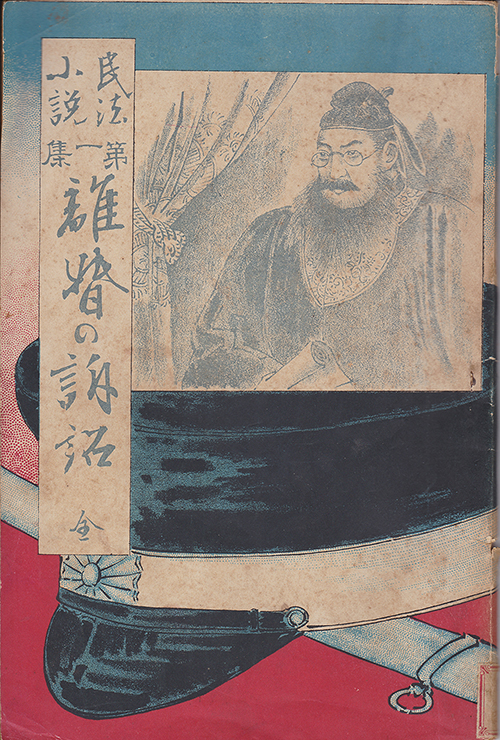 民法
小説
第一集
離婚の訴訟
全